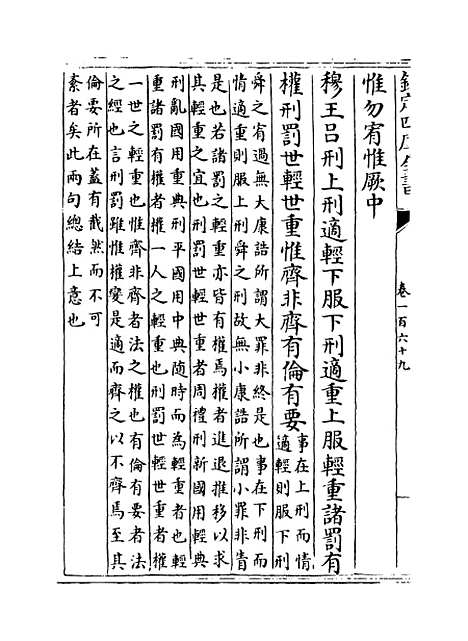 欽定四庫全書
卷一百六十九
惟勿宥惟厥中
穆王呂刑上刑適輕下服下刑適重上服輕重諸罰有
權刑罰世輕世重惟齊非齊有倫有要事在上刑而情
適輕則服下刑
舜之宥過無大康誥所謂大罪非終是也事在下刑而
情適重則服上刑舜之刑故無小康誥所謂小罪非眚
是也若諸罰之輕重亦皆有權焉權者進退推移以求
其輕重之宜也刑罰世輕世重者周禮刑新國用輕典
刑亂國用重典刑平國用中典隨時而為輕重者也輕
重諸罰有權者權一人之輕重也刑罰世輕世重者權
一世之輕重也惟齊非齊者法之權也有倫有要者法
之經也言刑罰雖惟權變是適而齊之以不齊焉至其
倫要所在蓋有截然而不可
紊者矣此兩句總結上意也